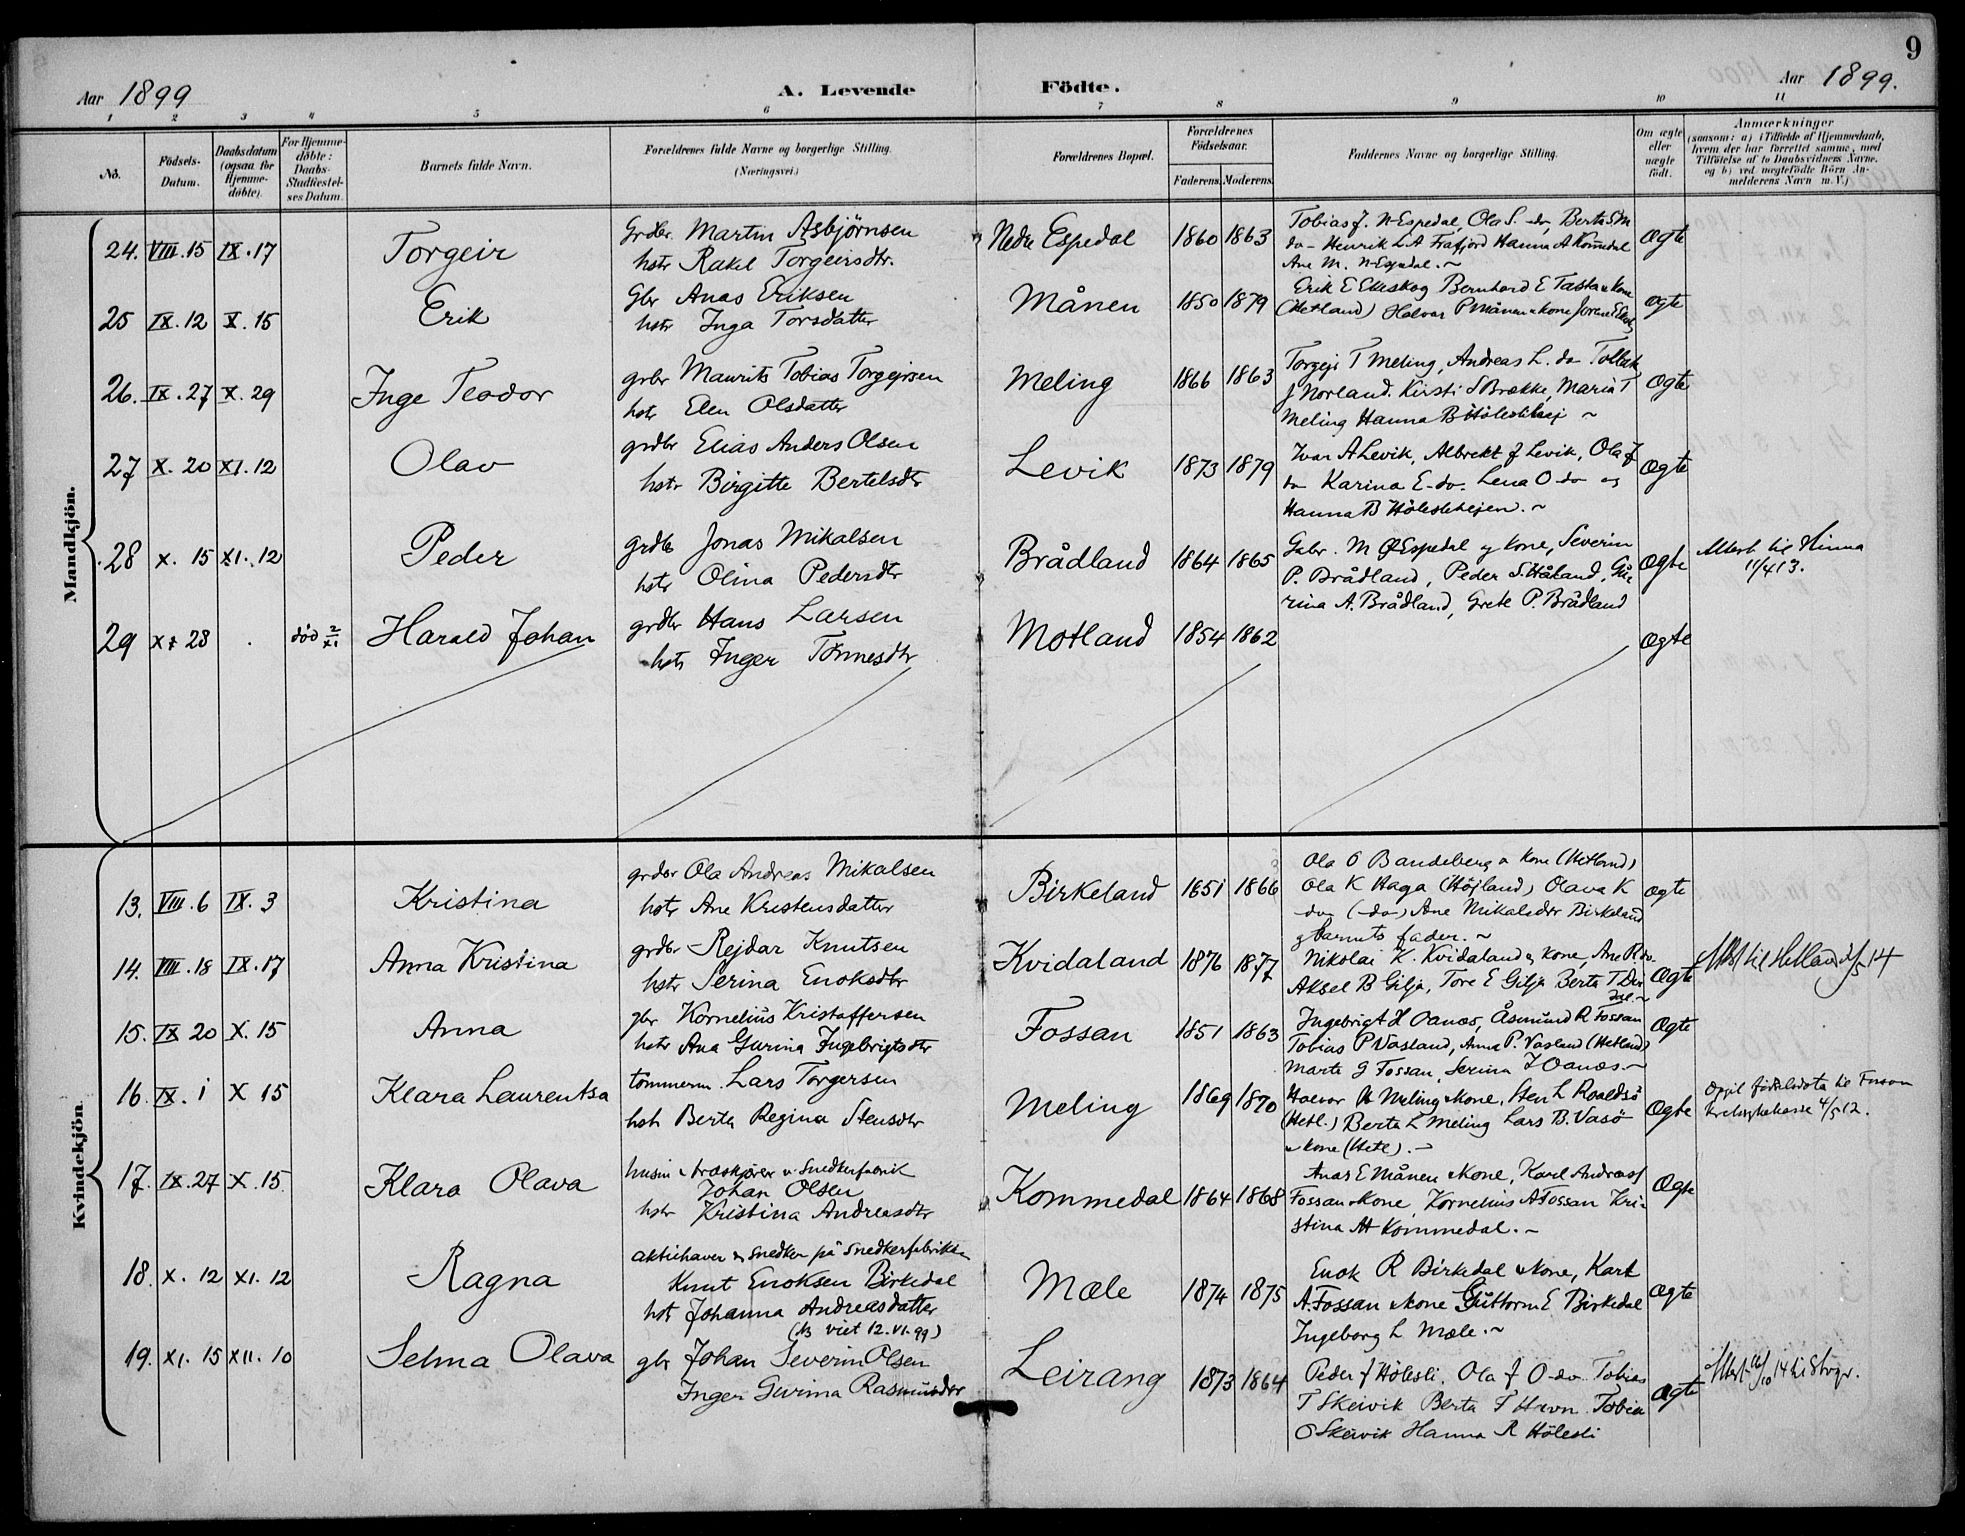 9
Aar 1899
A. Levende Födte.
Aar 1899.
1 2 3 4 5 6 7 8 9 10 11
No.
Födsels-Datum.
Daabsdatum (ogsaa for Hjemme-döbte).
For Hjemme-döbte: Daabs-Stadfæstel-ses Datum.
Barnets fulde Navn.
Forældrenes fulde Navne og borgerlige Stilling.
(Næringsvei.)
Forældrenes Bopæl.
Forældrenes Födselsaar.
Faderens. Moderens.
Faddernes Navne og borgerlige Stilling.
Om ægte eller uægte födt.
Anmærkninger
(saasom: a) i Tilfælde af Hjemmedaab,
hvem der har forrettet samme, med
Tilföielse af to Daabsvidners Navne.
og b) ved uægtefödte Börn An-
melderens Navn m. V.)
Mandkjön.
24. VIII. 15 IX. 17 Torgeir
Grdbr. Martin Asbjörnsen
hstr Rakel Torgeirsdtr.
Nedre Espedal 1860 1863
Tobias J. N-Espedal, Ola S. do, Berta S M
do - Henrik L A Frafjord Hanna A Kommedal
Ane M. N-Espedal. ~
Ægte
25 IX. 12 X. 15 Erik
Gbr Anas Eriksen
hstr Inga Torsdatter
Månen 1850 1879
Erik E Eikeskog Bernhard E Tasta & kone
(Hetland) Halvor P Månen & kone
ogte
26. IX. 27 X. 29 Inge Teodor
grbr Maurits Tobias Torgejrsen
hstr Elen Olsdatter
Meling 1866 1863
Torgejr T Meling, Andreas L. do
J Norland. Kirsti S Brække, Maria T
Meling Hanna B ~
Ægte
27 X. 20 XI. 12 Olav
grdbr Elias Anders Olsen
hstr Birgitte Bertelsdtr
Levik 1873 1879
Ivar A Levik, Albrekt J Levik, Ola J
do Karina E-do. Lena O do og
Hanna B Höleslihejen. ~
Ægte
28 X. 15 XI. 12 Peder
grdbr Jonas Mikalsen
hstr Olina Pedersdtr
Brådland 1864 1865
Gabr. M Ø Espedal og kone, Severin
P. Brådland, Peder S. Håland, Gu-
rina A. Brådland, Grete P. Brådland
Ægte
Attest til Hinna
11/4 13.
29 X. 28 . död 2/XI Harald Johan
grdbr Hans Larsen
hstr Inger Tönnesdtr
Motland 1854 1862
Ægte
Kvindekjön.
13. VIII. 6 IX. 3 Kristina
grdbr Ola Andreas Mikalsen
hstr Ane Kristensdatter
Birkeland 1851 1866
Ola O Bandeberg & kone (Hetland)
Ola K Haga (Höjland) Olava K
do (-do) Ane Mikalsdtr Birkeland
og barnets fader. ~
ogte
14. VIII. 18 IX. 17 Anna Kristina
grdbr Rejdar Knutsen
hstr Serina Enoksdtr
Kvidaland 1876 1877
Nikolai K. Kvidaland & kone Ane R do.
Aksel B Gilja, Tore E Gilja Berta T
Ægte
Attest til Hetland
15. IX 20 X. 15 Anna
gbr Kornelius Kristoffersen
hstr Ana Gurina Ingebrigtsdtr
Fossan 1851 1863
Ingebrigt H Oanæs, Åsmund R Fossan
Tobias P Vasland, Anna P. Vasland (Hetland)
Marta G Fossan, Serina I Oanæs. ~
Ægte
16. IX. 1 X 15 Klara Laurentsa
tömmerm. Lars Torgersen
hstr Berta Regina Stensdtr
Meling 1869 1870
Halvor Meling & kone, Sten L Roaldsö
(Hetl.) Berta L Meling Lars B. Vasö
& kone (Hetl). ~
Ægte
Opgit födselsdata til
4/5 12.
17. IX. 27 X. 15. Klara Olava
husm & træskjærer v. Snedkerfabrik
Johan Olsen
hstr Kristina Andreasdtr
Kommedal 1864 1868
Anas E Månen & kone, Karl Andreas J
Fossan & kone, Kornelius A Fossan Kri-
stina A Kommedal. ~
Ægte
18. X. 12 XI. 12 Ragna
Aktiehaver & snedker på Snedkerfabrikken
Knut Enoksen Birkedal
hstr Johanna Andreasdatter
(NB viet 12. VI. 99)
Mæle 1874 1875
Enok R Birkedal & kone, Karl
A. Fossan & kone Guttorm E Birkedal
Ingeborg L Mæle. ~
Ægte
19. XI. 15 XII. 10 Selma Olava
gbr Johan Severin Olsen
Inger Gurina Rasmusdtr
Leirang 1873 1864
Peder J Hölesli. Ola J O-do Tobias
T Skeivik Berta T Havn. Tobias
O Skeivik Hanna R Hölesli
Ægte